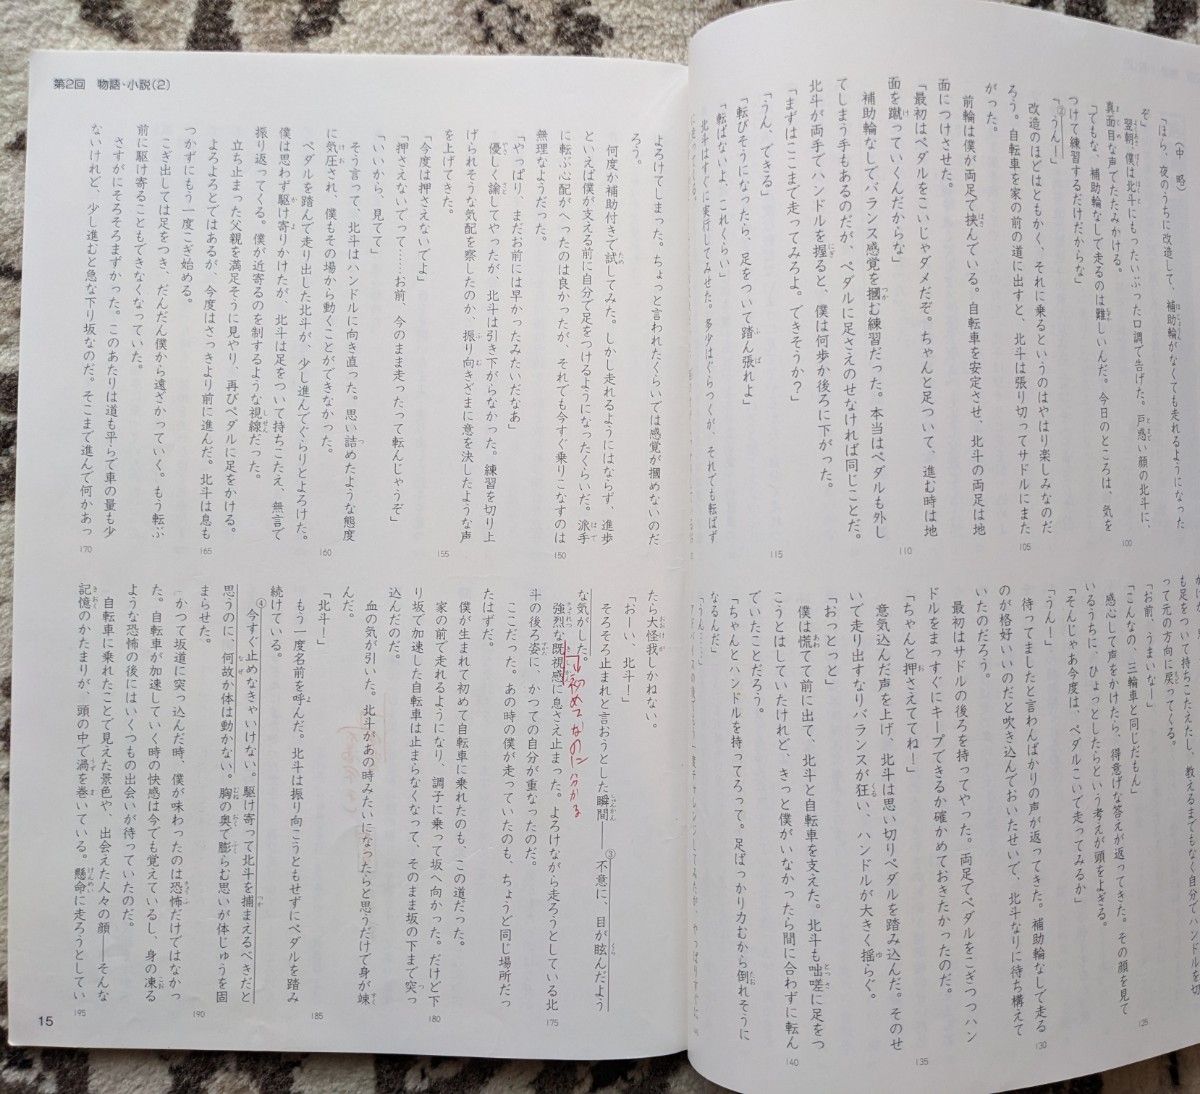 (中 略)
「ほら、夜のうちに改造して、補助輪がなくても走れるようになった
ぞ」
翌朝、僕は北斗にもったいぶった口調で告げた。戸惑い顔の北斗に、
真面目な声でたたみかける。
「でもな、補助輪なしで走るのは難しいんだ。今日のところは、気を
つけて練習するだけだからな」
②「うん!」
改造のほどはともかく、それに乗るというのはやはり楽しみなのだ
ろう。自転車を家の前の道に出すと、北斗は張り切ってサドルにまた
がった。
前輪は僕が両足で挟んでいる。自転車を安定させ、北斗の両足は地
面につけさせた。
「最初はペダルをこいじゃダメだぞ。ちゃんと足ついて、進む時は地
面を蹴っていくんだからな」
補助輪なしでバランス感覚を摑む練習だった。本当はペダルも外し
てしまう手もあるのだが、ペダルに足さえのせなければ同じことだ。
北斗が両手でハンドルを握ると、僕は何歩か後ろに下がった。
「まずはここまで走ってみろよ。できそうか?」
「うん、できる」
「転びそうになったら、足をついて踏ん張れよ」
「転ばないよ、これくらい」
北斗はすぐに実行してみせた。多少はぐらつくが、それでも転ばず
100
105
110
115
って元の方向に戻ってくる。
「お前、うまいなー」
「こんなの、三輪車と同じだもん」
感心して声をかけたら、得意げな答えが返ってきた。その顔を見て
いるうちに、ひょっとしたらという考えが頭をよぎる。
「そんじゃあ今度は、ペダルこいで走ってみるか」
「うん!」
待ってましたと言わんばかりの声が返ってきた。補助輪なしで走る
のが格好いいのだと吹き込んでおいたせいで、北斗なりに待ち構えて
いたのだろう。
最初はサドルの後ろを持ってやった。両足でペダルをこぎつつハン
ドルをまっすぐにキープできるか確かめておきたかったのだ。
「ちゃんと押さえててね!」
意気込んだ声を上げ、北斗は思い切りペダルを踏み込んだ。そのせ
いで走り出すなりバランスが狂い、ハンドルが大きく揺らぐ。
「おっとっと」
僕は慌てて前に出て、北斗と自転車を支えた。北斗も咄嗟に足をつ
こうとはしていたけれど、きっと僕がいなかったら間に合わずに転ん
でいたことだろう。
「ちゃんとハンドルを持ってろって。足ばっかり力むから倒れそうに
なるんだ」
「うん…
125
130
135
140
第2回 物語・小説(2)
よろけてしまった。ちょっと言われたくらいでは感覚が摑めないのだ
ろう。
何度か補助付きで試してみた。しかし走れるようにはならず、進歩
といえば僕が支える前に自分で足をつけるようになったくらいだ。派手
に転ぶ心配がへったのは良かったが、それでも今すぐ乗りこなすのは
無理なようだった。
「やっぱり、まだお前には早かったみたいだなあ」
優しく諭してやったが、北斗は引き下がらなかった。練習を切り上
げられそうな気配を察したのか、振り向きざまに意を決したような声
を上げてきた。
「今度は押さえないでよ」
「押さえないでって……お前、今のまま走ったって転んじゃうぞ」
「いいから、見てて」
そう言って、北斗はハンドルに向き直った。思い詰めたような態度
に気圧され、僕もその場から動くことができなかった。
ペダルを踏んで走り出した北斗が、少し進んでぐらりとよろけた。
僕は思わず駆け寄りかけたが、北斗は足をついて持ちこたえ、無言で
振り返ってくる。僕が近寄るのを制するような視線だった。
立ち止まった父親を満足そうに見やり、再びペダルに足をかける。
よろよろとではあるが、今度はさっきより前に進んだ。北斗は息も
つかずにもう一度こぎ始める。
こぎ出しては足をつき、だんだん僕から遠ざかっていく。もう転ぶ
前に駆け寄ることもできなくなっていた。
さすがにそろそろまずかった。このあたりは道も平らで車の量も少
ないけれど、少し進むと急な下り坂なのだ。そこまで進んで何かあっ
150
155
160
165
170
たら大怪我しかねない。
「おーい、北斗!」
そろそろ止まれと言おうとした瞬間――③不意に、目が眩んだよう
な気がした。
強烈な既視感に息さえ止まった。よろけながら走ろうとしている北
斗の後ろ姿に、かつての自分が重なったのだ。
ここだった。あの時の僕が走っていたのも、ちょうど同じ場所だっ
たはずだ。
僕が生まれて初めて自転車に乗れたのも、この道だった。
家の前で走れるようになり、調子に乗って坂へ向かった。だけど下
り坂で加速した自転車は止まらなくなって、そのまま坂の下まで突っ
込んだのだ。
血の気が引いた。北斗があの時みたいになったらと思うだけで身が竦
んだ。
「北斗!」
もう一度名前を呼んだ。北斗は振り向こうともせずにペダルを踏み
続けている。
④今すぐ止めなきゃいけない。駆け寄って北斗を捕まえるべきだと
思うのに、何故か体は動かない。胸の奥で膨らむ思いが体じゅうを固
まらせた。
かつて坂道に突っ込んだ時、僕が味わったのは恐怖だけではなかっ
た。自転車が加速していく時の快感は今でも覚えているし、身の凍る
ような恐怖の後にはいくつもの出会いが待っていたのだ。
自転車に乗れたことで見えた景色や、出会えた人々の顔――そんな
記憶のかたまりが、頭の中で渦を巻いている。懸命に走ろうとしてい
175
180
185
190
195
初めてなのに分かる
15